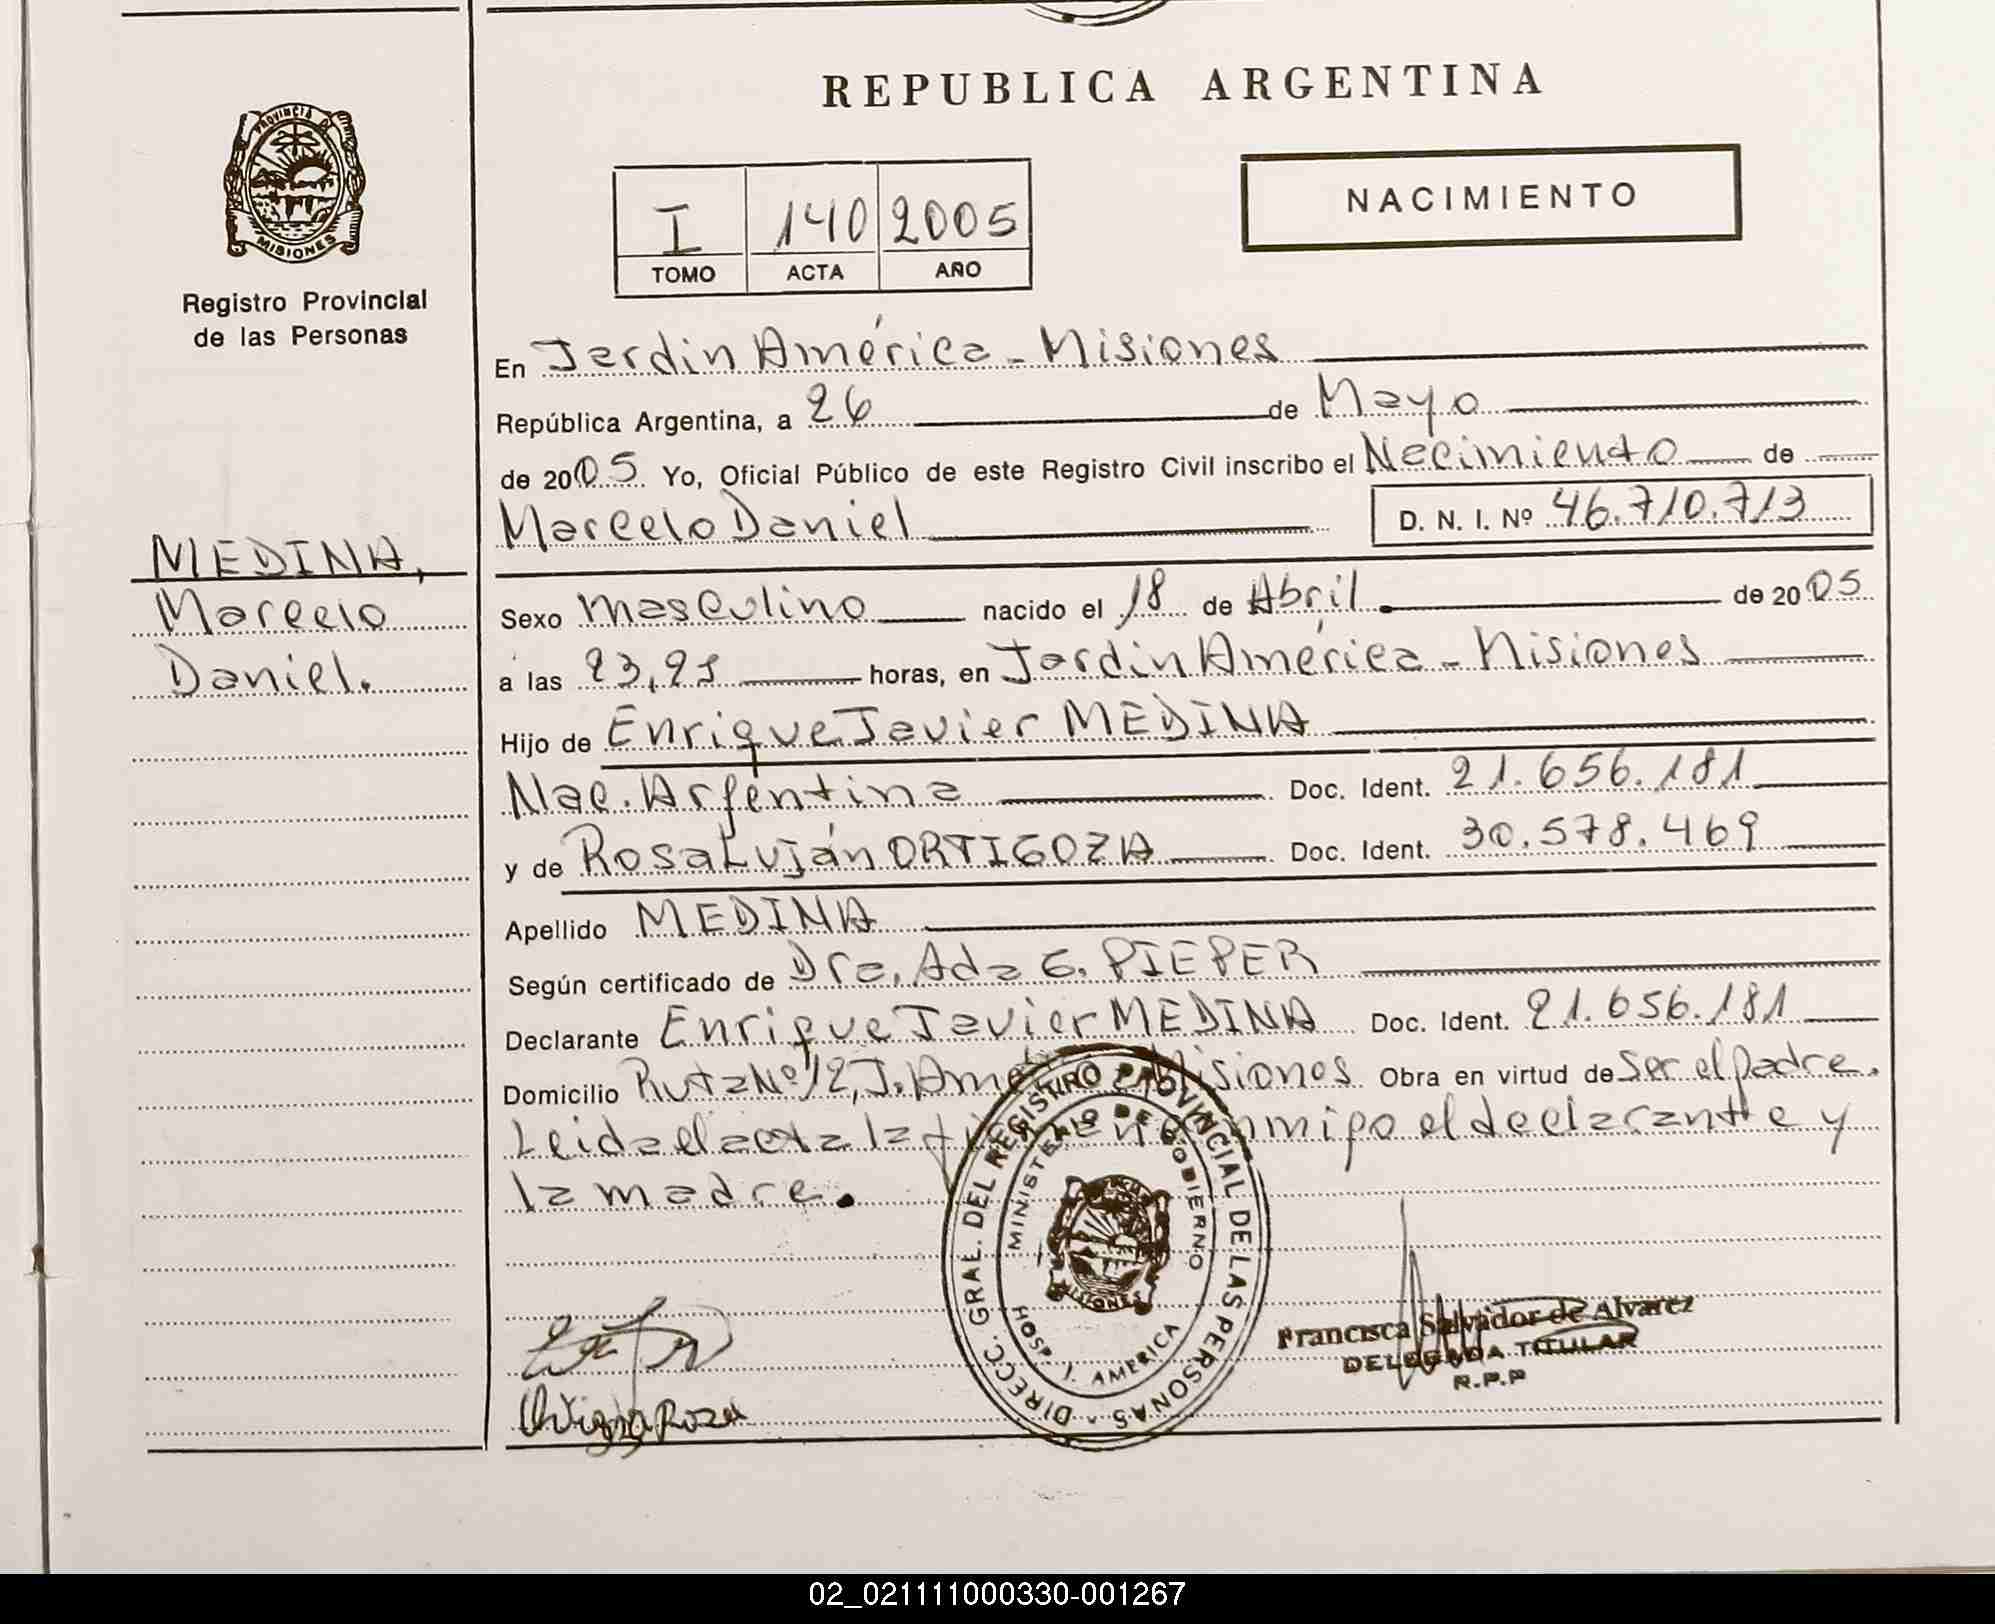 REPUBLICA ARGENTINA
PROVINCIA DE
MISIONES
Registro Provincial
de las Personas
I 140 2005
TOMO ACTA AÑO
NACIMIENTO
En Jardin América - Misiones
República Argentina, a 26 de Mayo
de 2005 Yo, Oficial Público de este Registro Civil inscribo el Nacimiento de
Marcelo Daniel D. N. I. Nº 46.710.713
MEDINA,
Marcelo
Daniel.
Sexo masculino nacido el 18 de Abril de 2005
a las 23,25 horas, en Jardin América - Misiones
Hijo de Enrique Javier MEDINA
Nac. Argentina Doc. Ident. 21.656.181
y de Rosa Luján ORTIGOZA Doc. Ident. 30.578.469
Apellido MEDINA
Según certificado de Dra. Ada G. PIEPER
Declarante Enrique Javier MEDINA Doc. Ident. 21.656.181
Domicilio Ruta Nº 12, J. América Misiones Obra en virtud de Ser el padre.
Leida el acta la firman conmigo el declarante y
la madre.
DIRECC. GRAL. DEL REGISTRO PROVINCIAL DE LAS PERSONAS
MINISTERIO DE GOBIERNO
MISIONES
HOSP. J. AMERICA
Francisca Salvador de Alvarez
DELEGADA TITULAR
R.P.P
Ortigoza Rosa
02_021111000330-001267